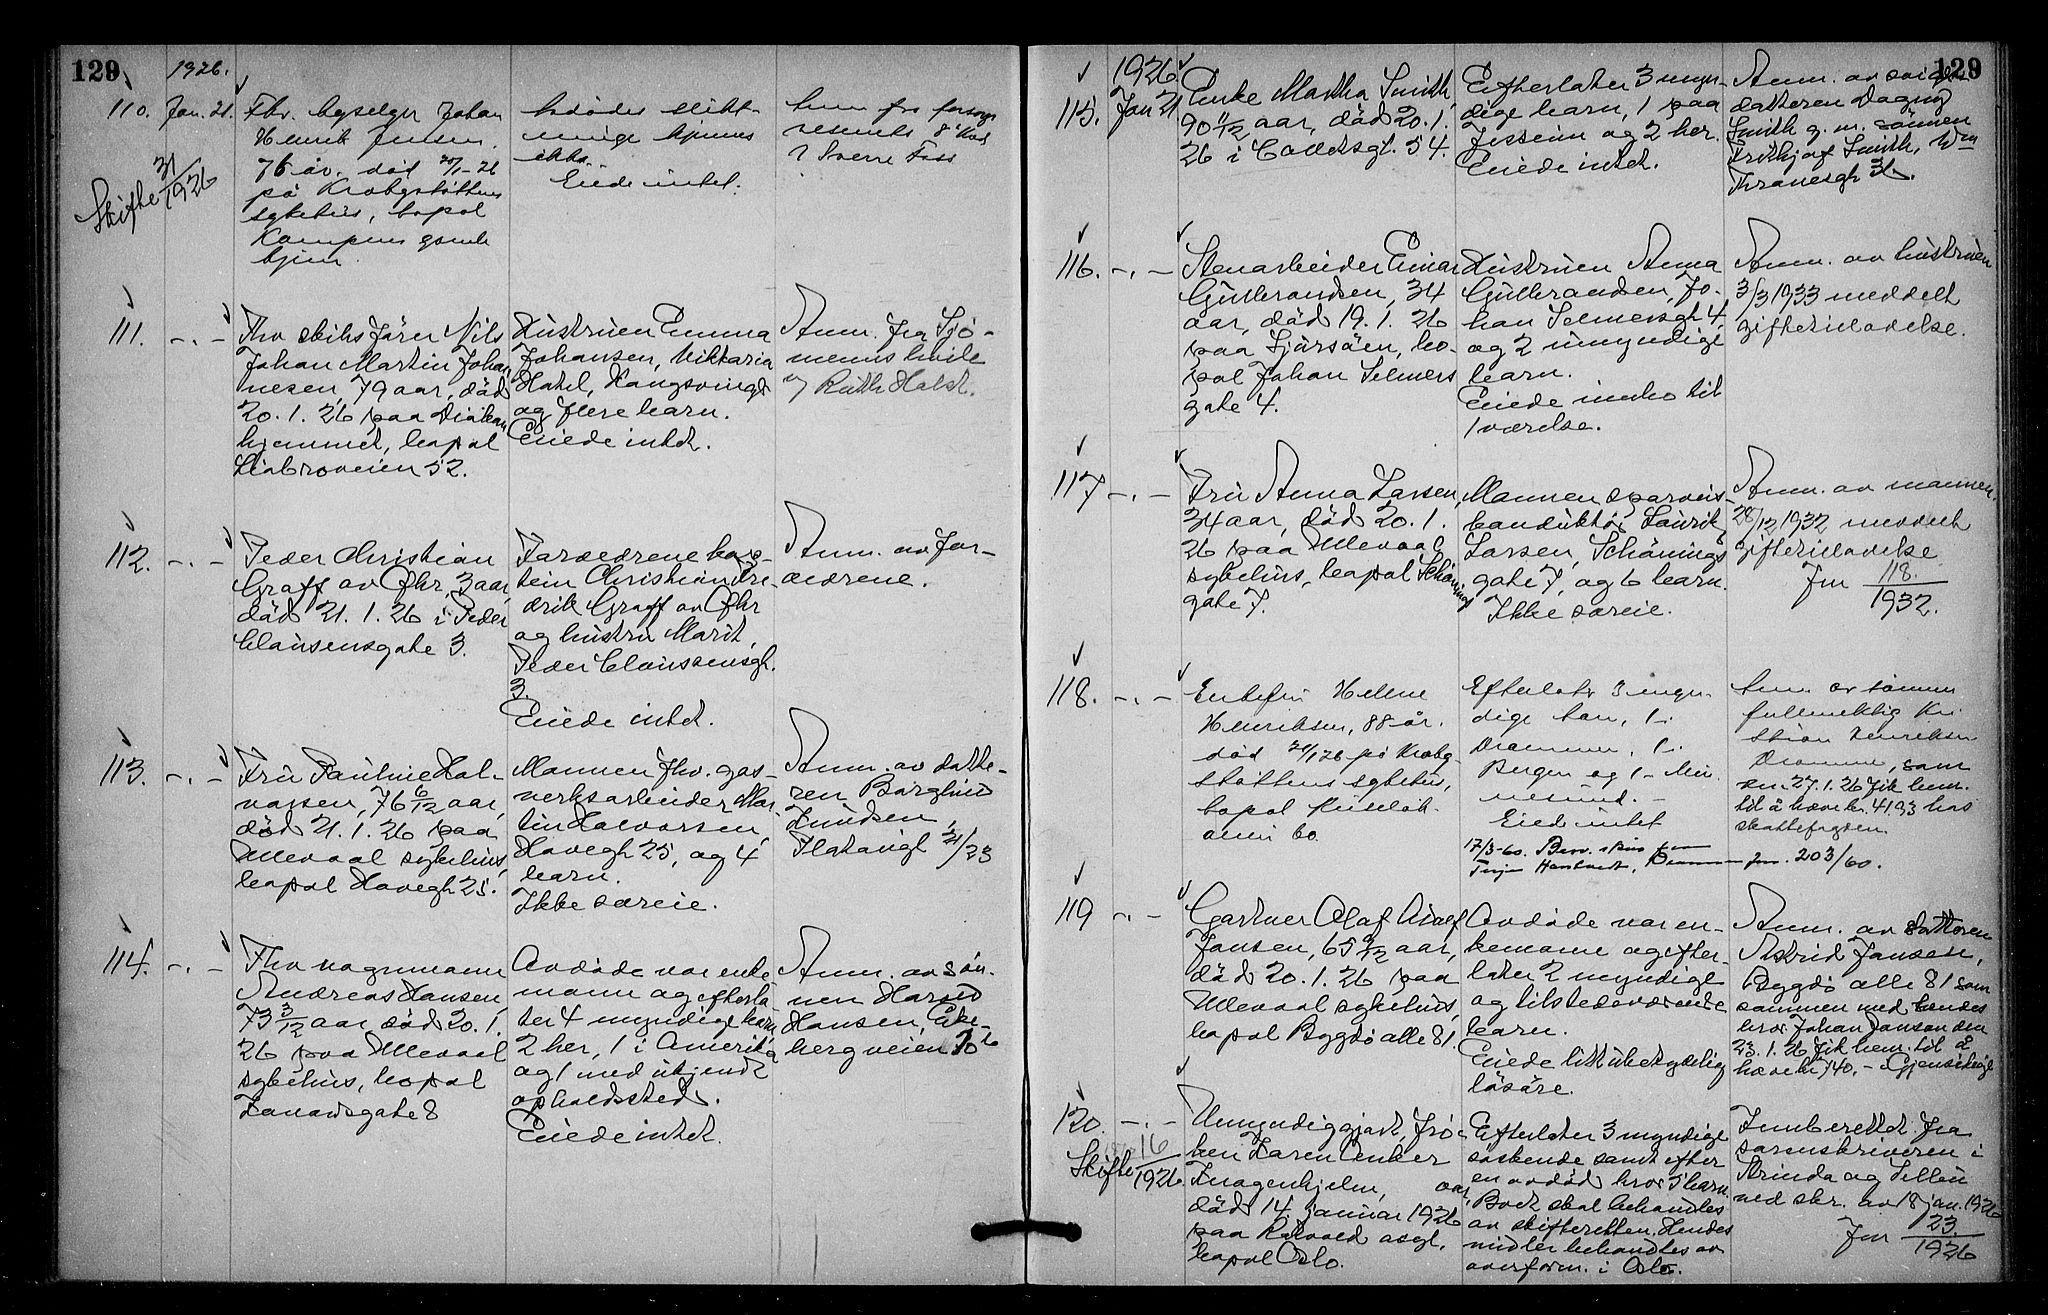 129
1926.
110. Jan. 21.
Skifte 31/1926
Fhv. Johan
Henrik Jensen,
76 år, død 20/1-26
på Krohgstøttens
sykehus, bopel
Kampens gamle
hjem.
Avdødes slekt-
ninge kjennes
ikke.
Eiede intet.
Anm. fra forsorgs
vesenet
v Sverre Foss
111. -.-
Fhv skibsfører Nils
Johan Martin Johan
nesen, 79 aar, død
20.1.26 paa Diakon
hjemmet, bopel
Ljabroveien 52.
Hustruen Emma
Johansen, Viktoria
Hotel, Kongsvinger
og flere barn.
Eiede intet.
Anm. fra Sjø-
menns hvile
v Ruth Holst.
112. -.-
Peder Christian
Graff av Øhr, 3 aar,
død 21.1.26 i Peder
Claussensgate 3.
Forældrene kap-
tein Christian Fre-
drik Graff av Øhr
og hustru Marit,
Peder Claussensgt.
3.
Eiede intet.
Anm. av for-
ældrene.
113. -.-
Fru Pauline Hal-
vorsen, 76 6/12 aar,
død 21.1.26 paa
Ullevaal sykehus,
bopel Havegt. 25.
Mannen fhv. gas-
verksarbeider Mar-
tin Halvorsen,
Havegt. 25, og 4
barn.
Ikke særeie.
Anm. av datte-
ren Borghild
Knudsen,
114. -.-
Fhv vognmann
Andreas Hansen,
73 3/12 aar, død 20.1.
26 paa Ullevaal
sykehus, bopel
Lanavsgate 8
Avdøde var enke
mann og efterla
ter 4 myndige barn
2 her, 1 i Amerika
og 1 med ukjendt
opholdssted.
Eiede intet.
Anm. av søn-
nen Harald
Hansen, Eke-
bergveien
129
1926
115. Jan 21
Enke Martha Smith,
90 11/12 aar, død 20.1.
26 i Colletsgt. 54.
Efterlater 3 myn-
dige barn, 1 paa
Jessheim og 2 her.
Eiede intet.
Anm. av sviger
datteren Dagny
Smith g.m. sønnen
Frithjof Smith, Wm
Thranesgt 31.
116. -.-
Stenarbeider Einar
Gulbrandsen, 34
aar, død 19.1.26
paa Sjursøen, bo-
pel Johan Selmers
gate 4.
Hustruen Anna
Gulbrandsen, Jo-
han Selmersgt 4,
og 2 umyndige
barn.
Eiede indbo til
1 værelse.
Anm. av hustruen
3/3 1933 meddelt
giftetilladelse.
117 -.-
Fru Anna Larsen,
34 aar, død 20.1.
26 paa Ullevaal
sykehus, bopel Schønings
gate 7.
Mannen sporveis-
konduktør Laurik
Larsen, Schønings
gate 7, og 6 barn.
Ikke særeie.
Anm. av mannen.
28/12 1932 meddelt
giftetilladelse
Jm 118./1932.
118. -.-
Enkefru Hellene
Henriksen, 88 år.
død 20/1 26 på Krohg-
støttens sykehus,
bopel
60
Efterlater 3 myn-
dige barn, 1 i
Drammen, 1 i
Bergen og 1 i Min
nesund.
Eied intet
17/3-60.
Jm. 203/60.
Anm. av sønnen
fullmektig Kri-
stian Henriksen
Drammen, som
den 27.1.26 fik bem.
til å hæve kr. 41.93 hos
skattefogden.
119 -.-
Gartner Olaf Adolf
Jansen, 65 9/12 aar,
død 20.1.26 paa
Ullevaal sykehus,
bopel Bygdø alle 81.
Avdøde var en-
kemann og efter-
later 2 myndige
og tilstedeværende
barn.
Eiede litt ubetydelig
løsøre.
Anm. av datteren
Astrid Jansen,
Bygdø alle 81 som
sammen med hendes
bror Johan Jansen den
23.1.26 fik bem. til å
hæve kr 140,-
120. -.-
Skifte 16/1926
Umyndiggjort frø-
ken Karen Anker
Knagenhjelm, aar,
død 14 januar 1926
paa Rotvold asyl,
bopel Oslo.
Efterlater 3 myndige
søskende samt efter
en avdød bror 5 barn.
Boet skal behandles
av skifteretten. Hendes
midler behandles av
overform. i Oslo.
Innberettet fra
sorenskriveren i
Strinda og Selbu
ved skr. av 18 jan. 1926
Jm 23./1926